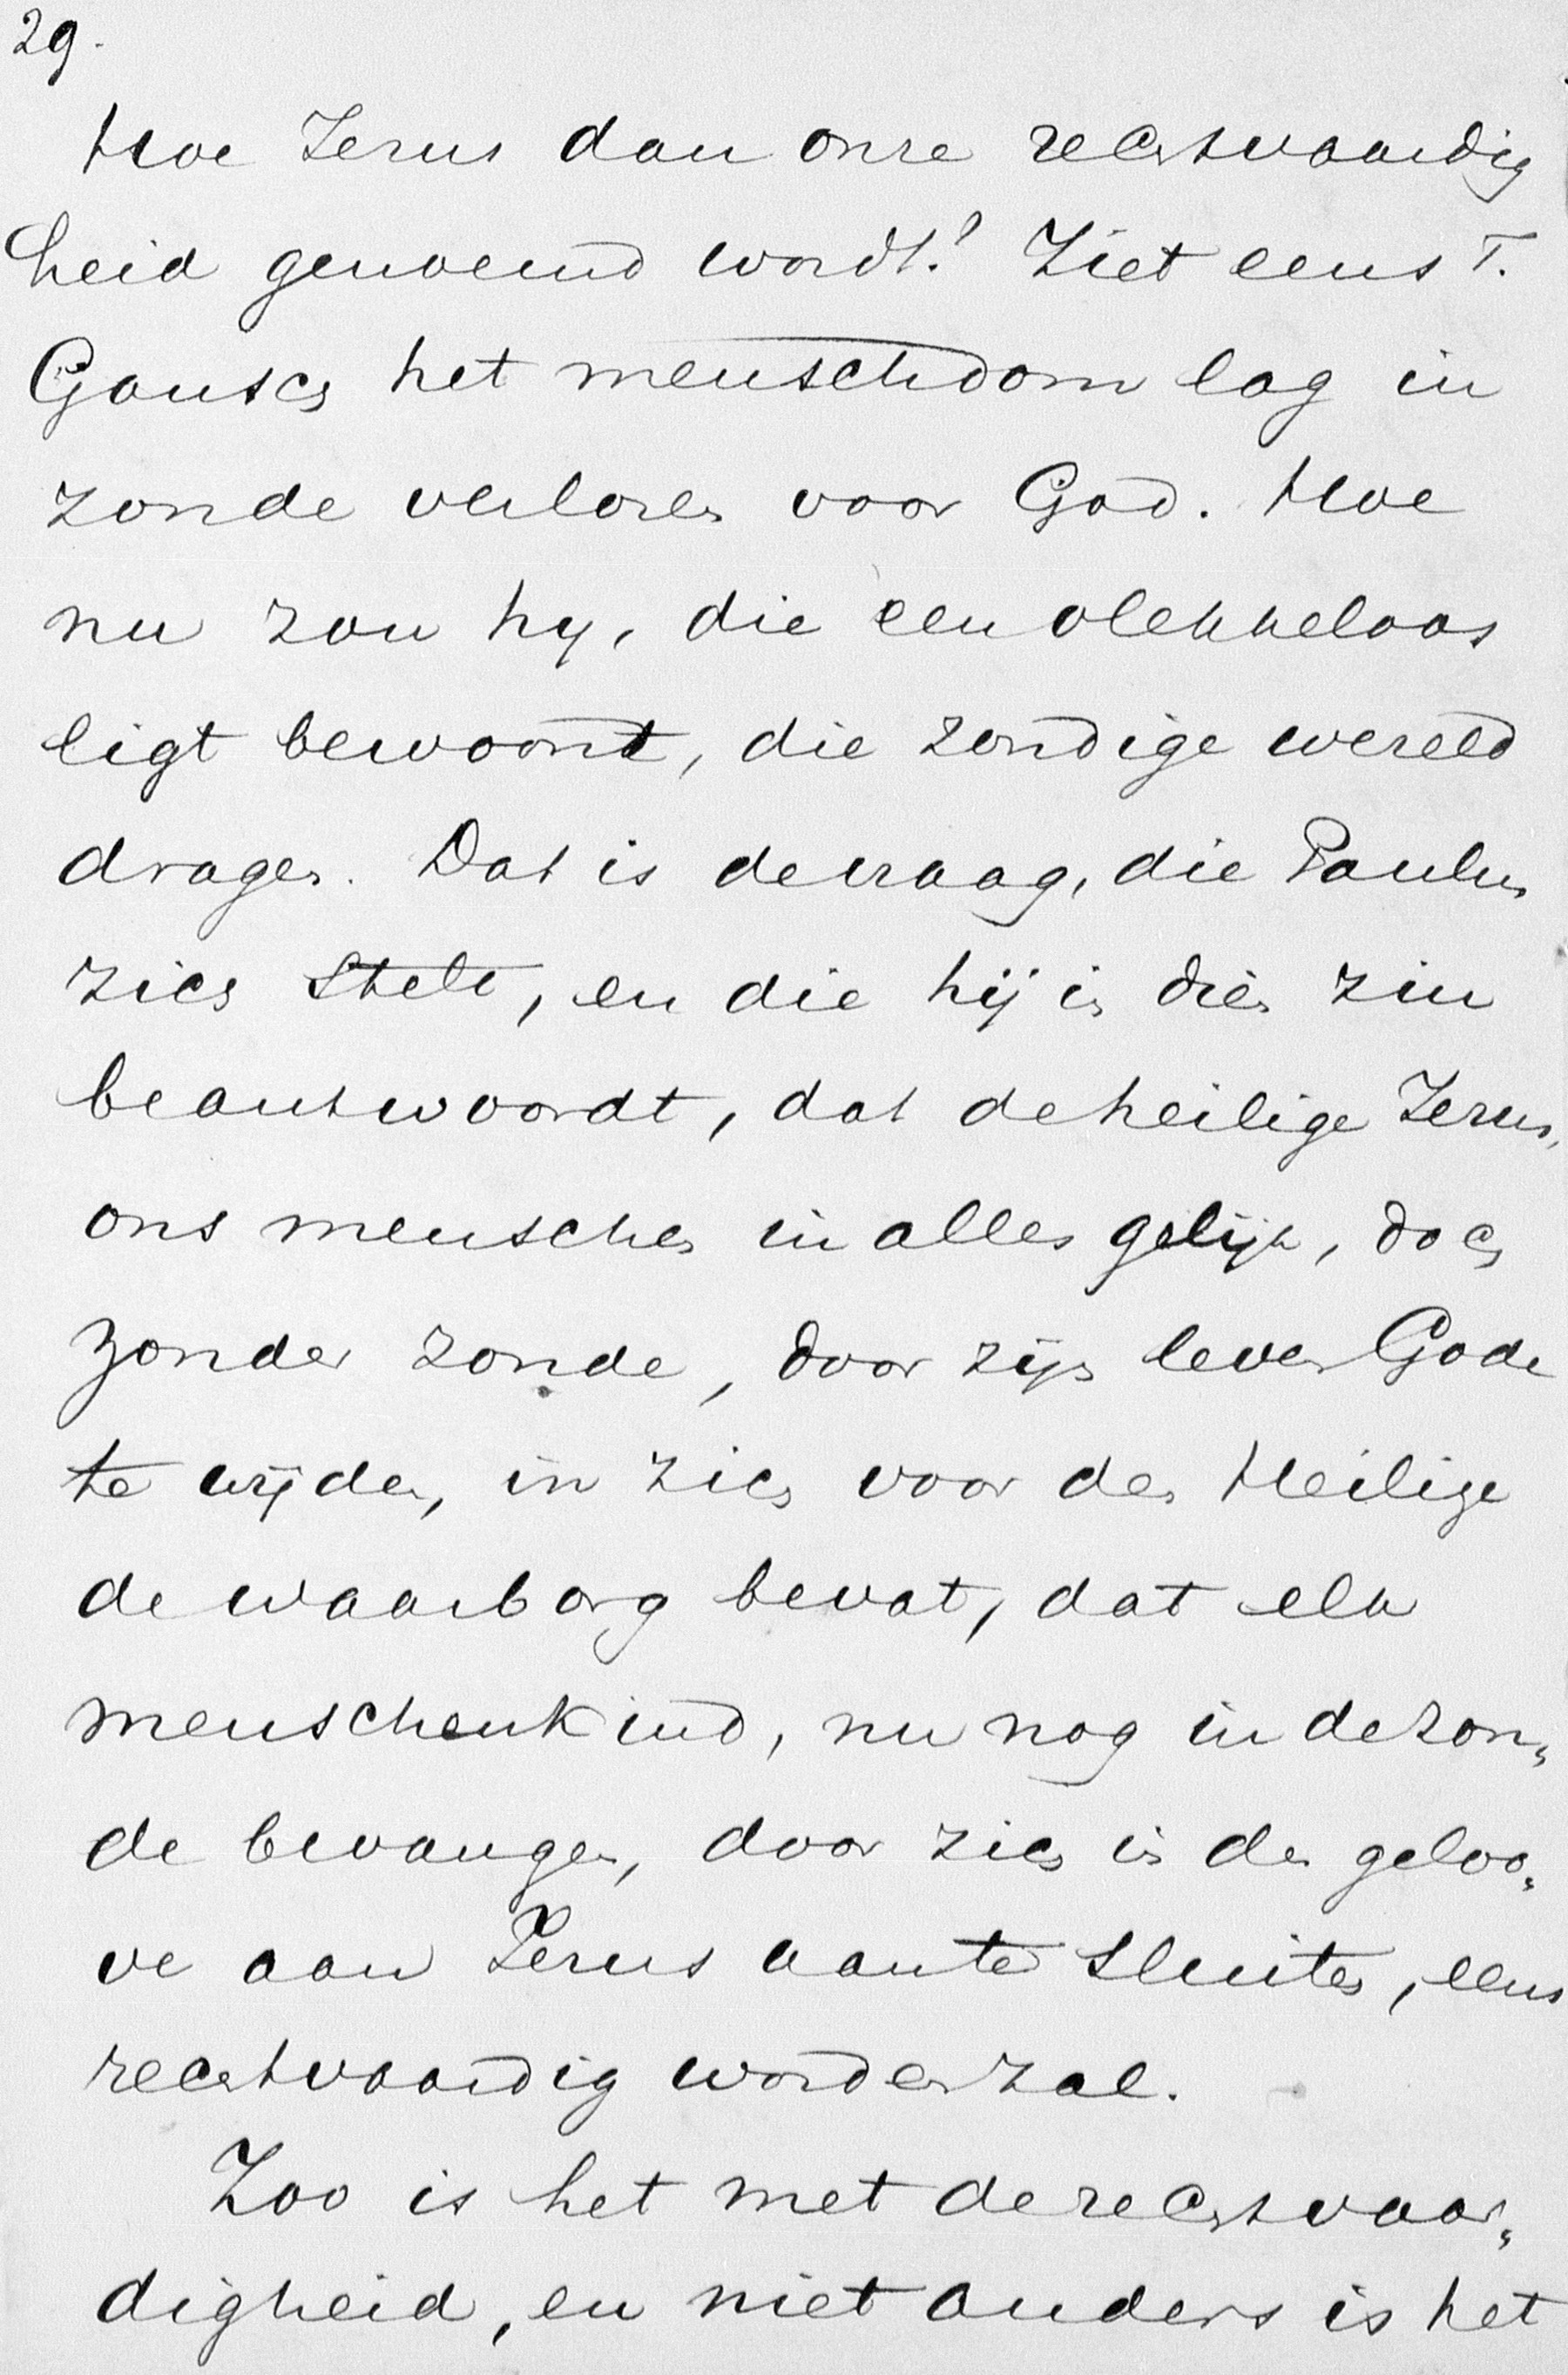 29.
Hoe Jezus dan onze rechtvaardig
heid genoemd wordt? Ziet eens T.
Gansch het menschdom lag in
zonde verloren voor God. Hoe
nu zou hij, die een vlekkeloos
ligt bewoont, die zondige wereld
dragen. Dat is de vraag, die Paulus
zich stelt, en die hij in dien zin
beantwoordt, dat de heilige Jezus,
ons menschen in alles gelijk, doch
zonder zonde, door zijn leven Gode
te wijden, in zich voor den Heilige
de waarborg bevat, dat elk
menschenkind, nu nog in de zon„
de bevangen, door zich in den geloo„
ve aan Jezus aan te sluiten, eens
rechtvaardig worden zal.
Zoo is het met de rechtvaar„
digheid, en niet anders is het